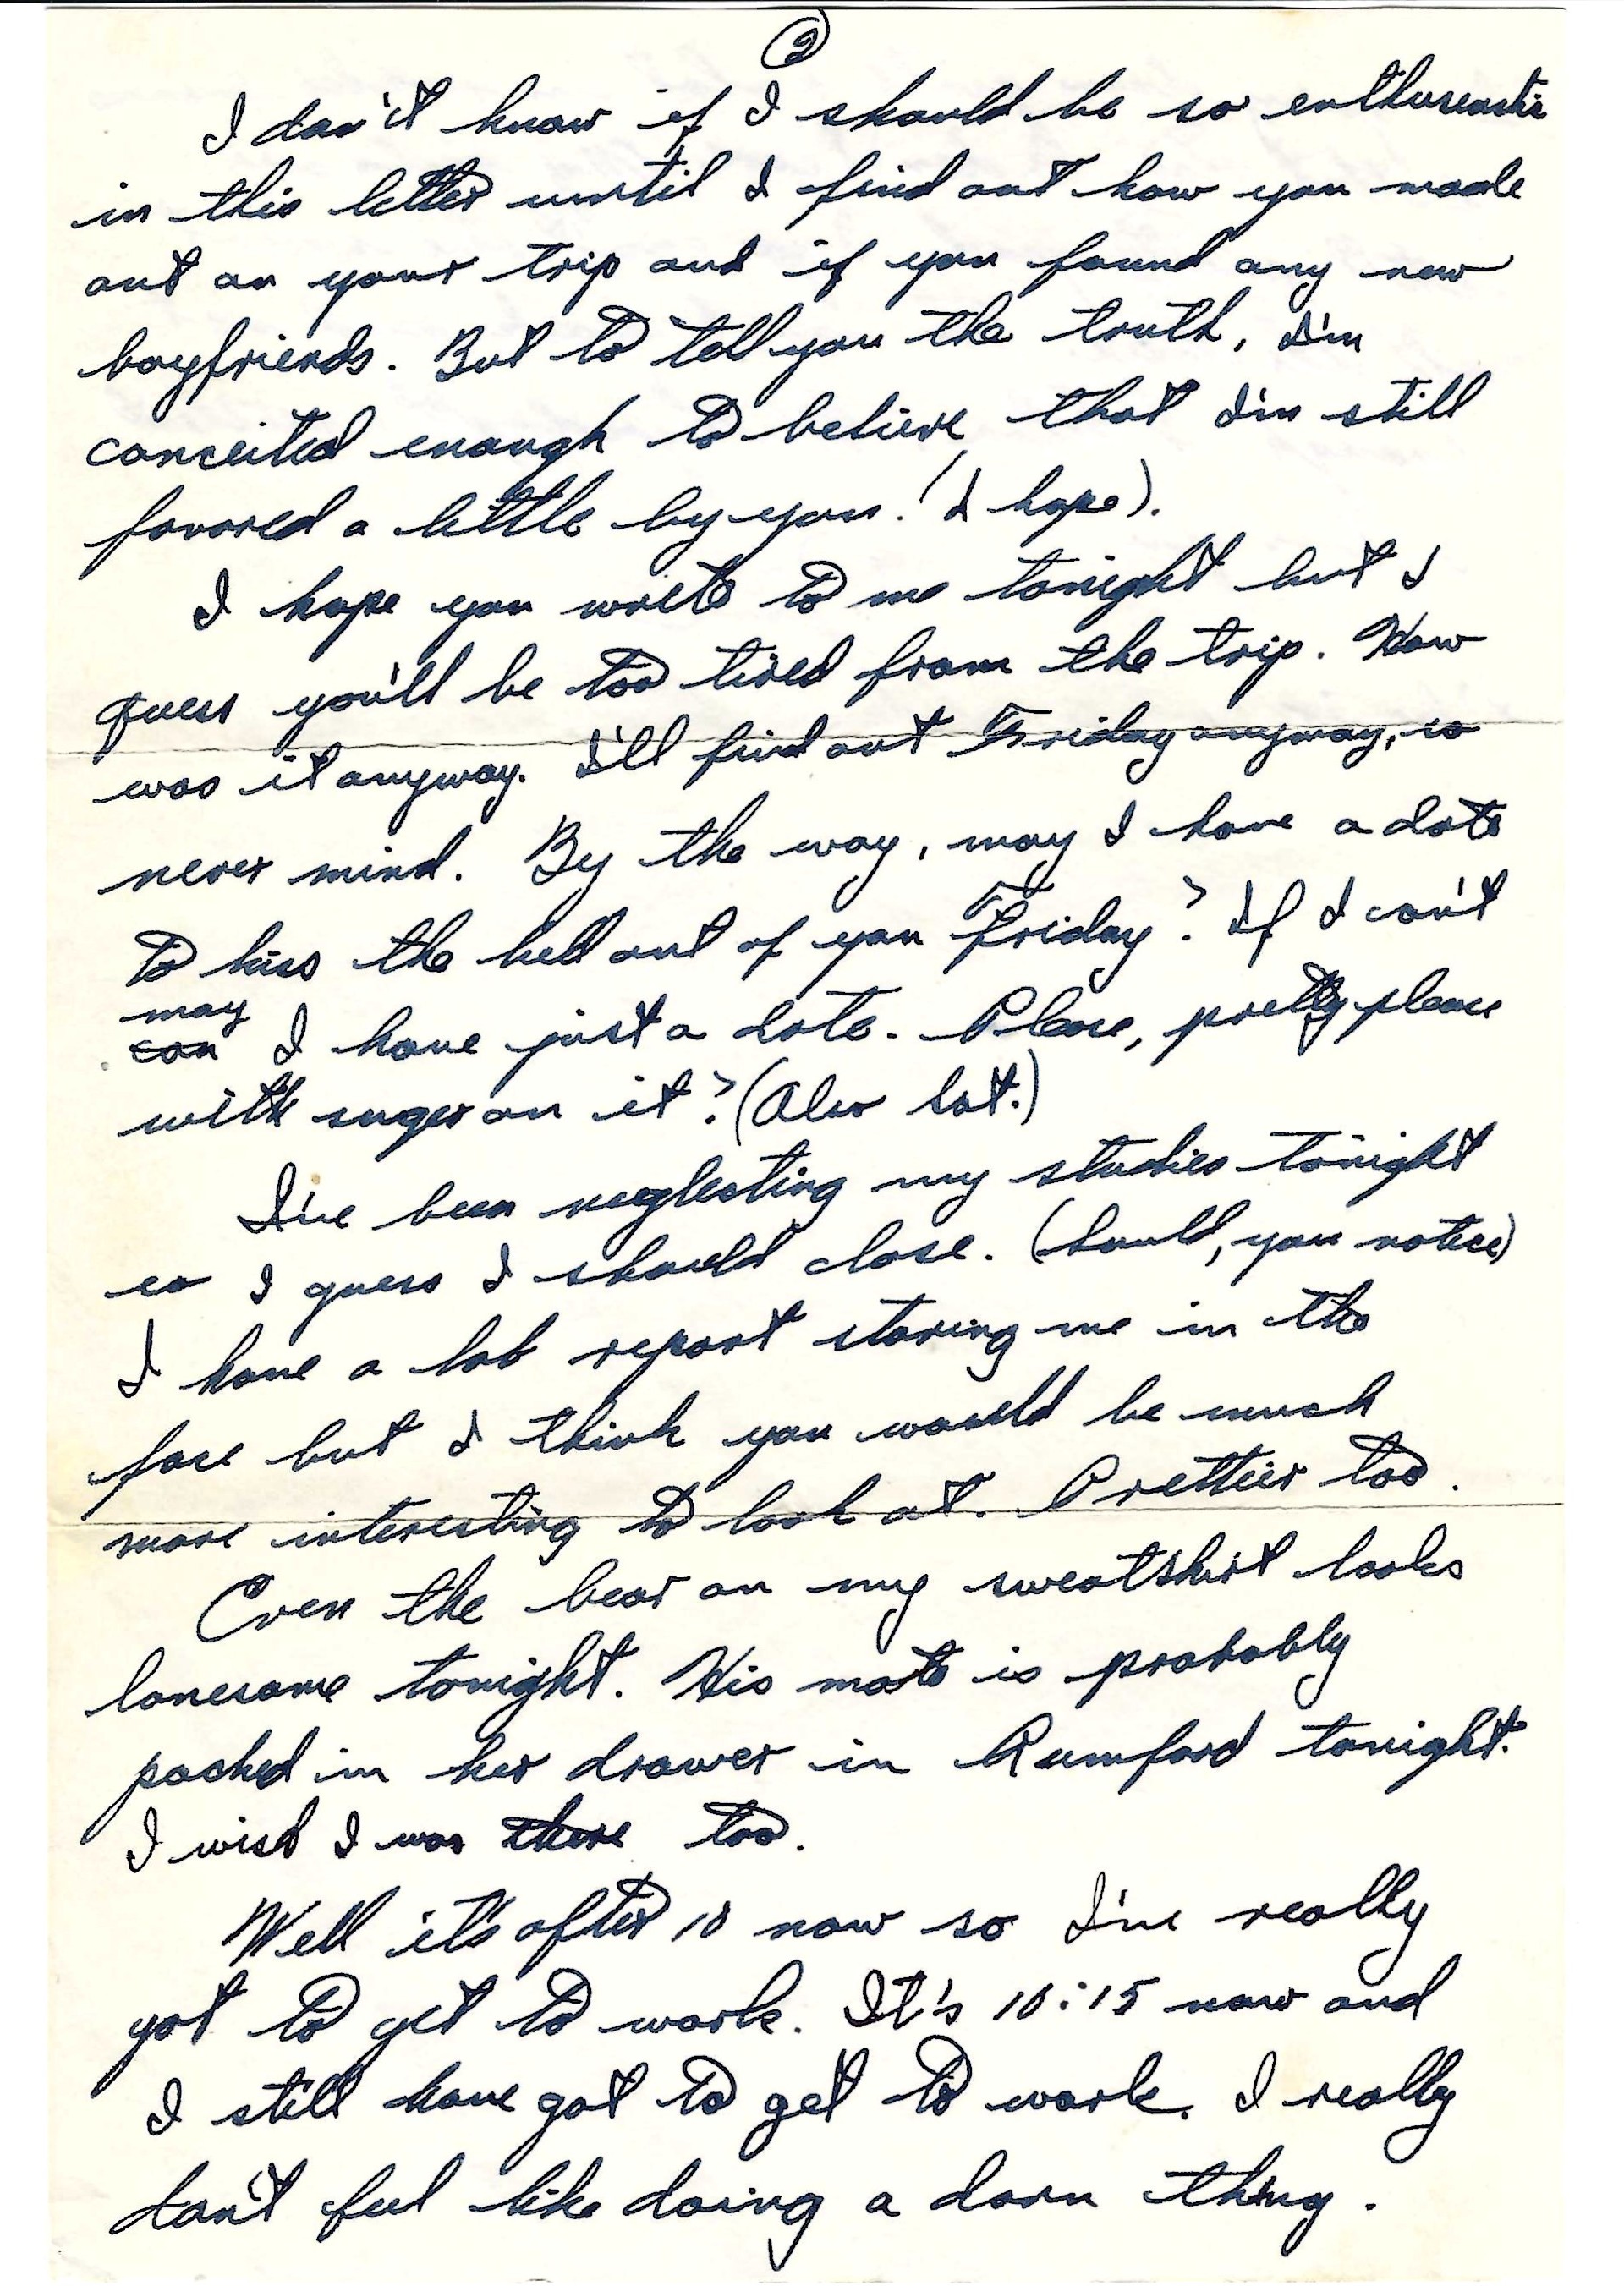 2
I don't know if I should be so enthuseastic
in this letter until I find out how you made
out on your trip and if you found any new
boyfriends. But to tell you the truth, I'm
conceited enough to believe that I'm still
favored a little by you. (I hope).
I hope you write to me tonight but I
guess you'll be too tired from the trip. How
was it anyway. I'll find out Friday anyway, so
never mind. By the way, may I have a date
to kiss the hell out of you Friday? If I can't
may
can I have just a date. Please, pretty please
with suger on it? (Also lat.)
I've been neglecting my studies tonight
so I guess I should close. (should, you notice)
I have a lab report staring me in the
face but I think you would be much
more interesting to look at. Prettier too.
Even the bear on my sweatshirt looks
lonesome tonight. His mate is probably
packed in her drawer in Rumford tonight.
I wish I was there too.
Well it's after 10 now so I've really
got to get to work. It's 10:15 now and
I still have got to get to work. I really
don't feel like doing a darn thing.